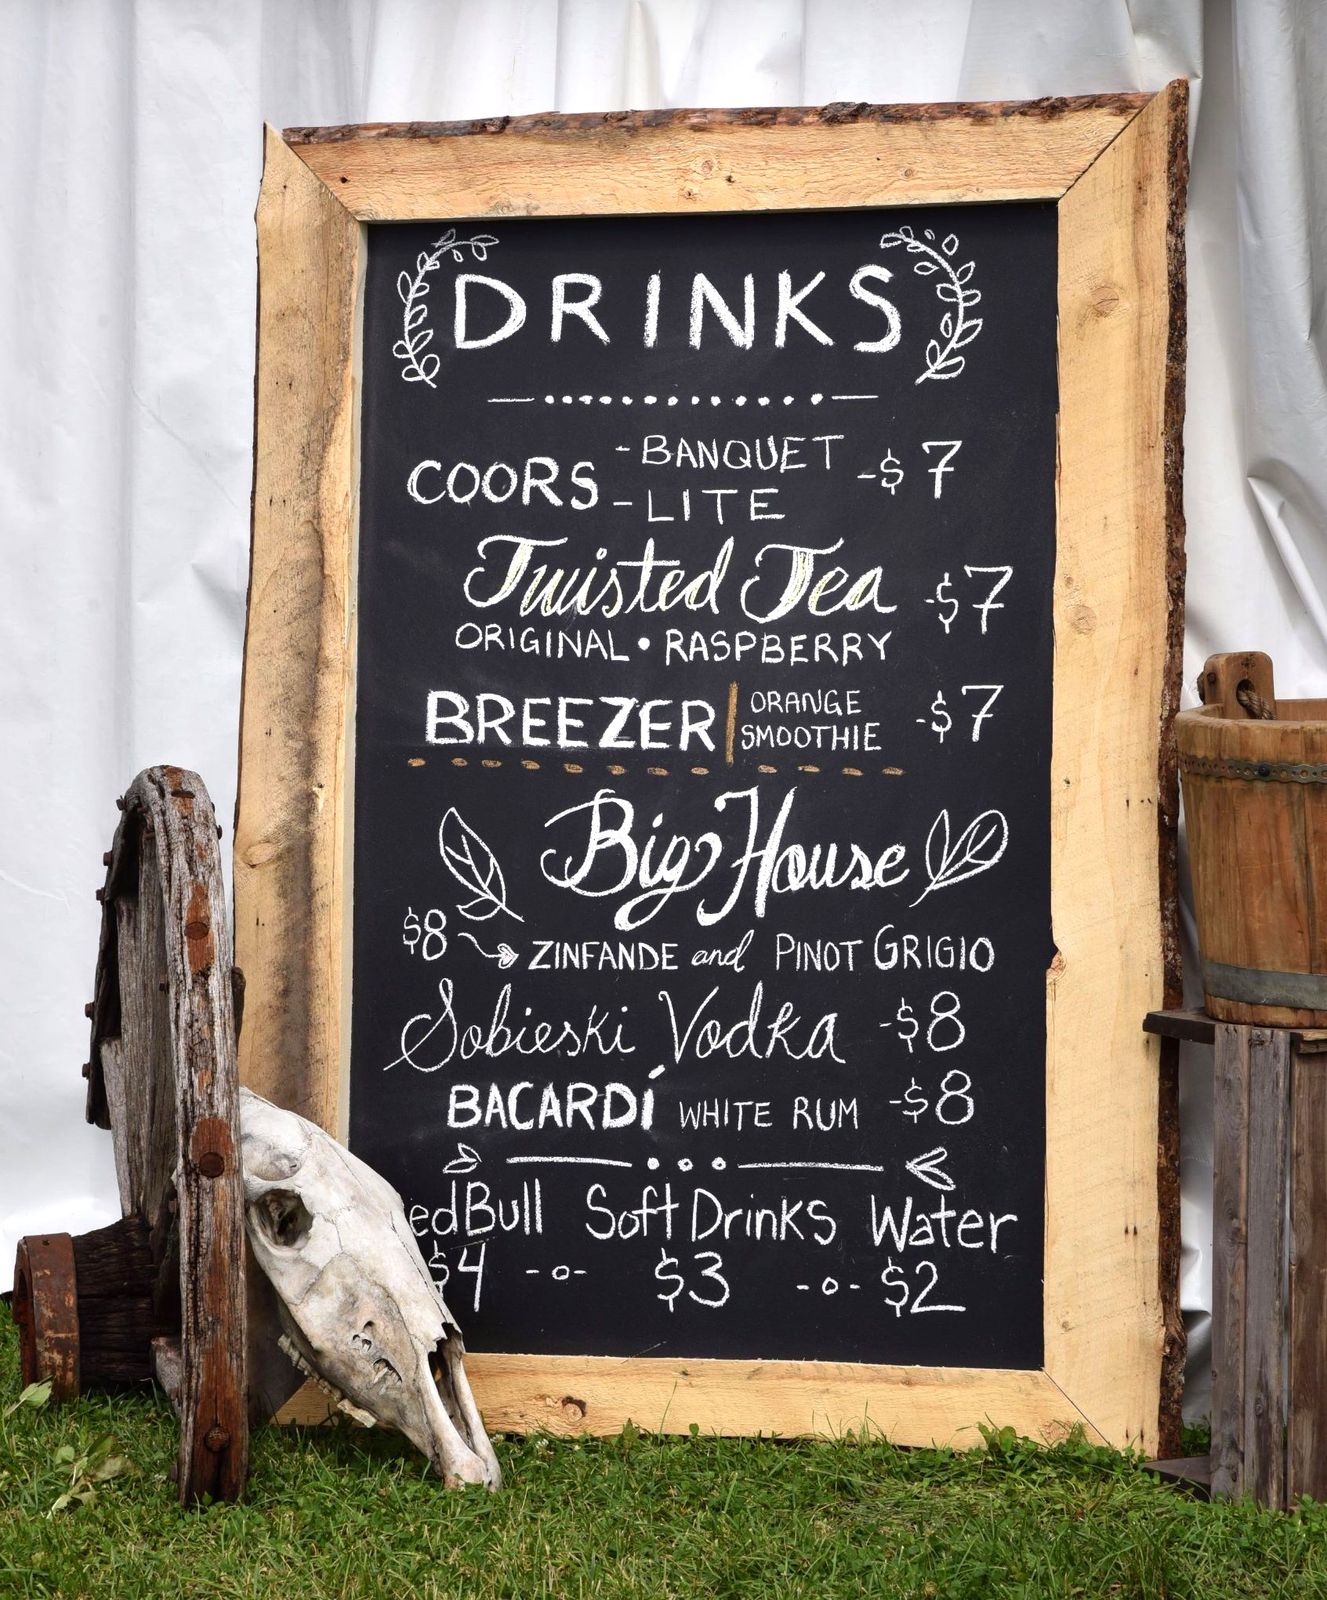 DRINKS
COORS - BANQUET - $7
- LITE
Twisted Tea - $7
ORIGINAL • RASPBERRY
BREEZER | ORANGE SMOOTHIE - $7
Big House
$8 → ZINFANDE and PINOT GRIGIO
Sobieski Vodka - $8
BACARDÍ WHITE RUM - $8
edBull Soft Drinks Water
$4 -o- $3 -o- $2